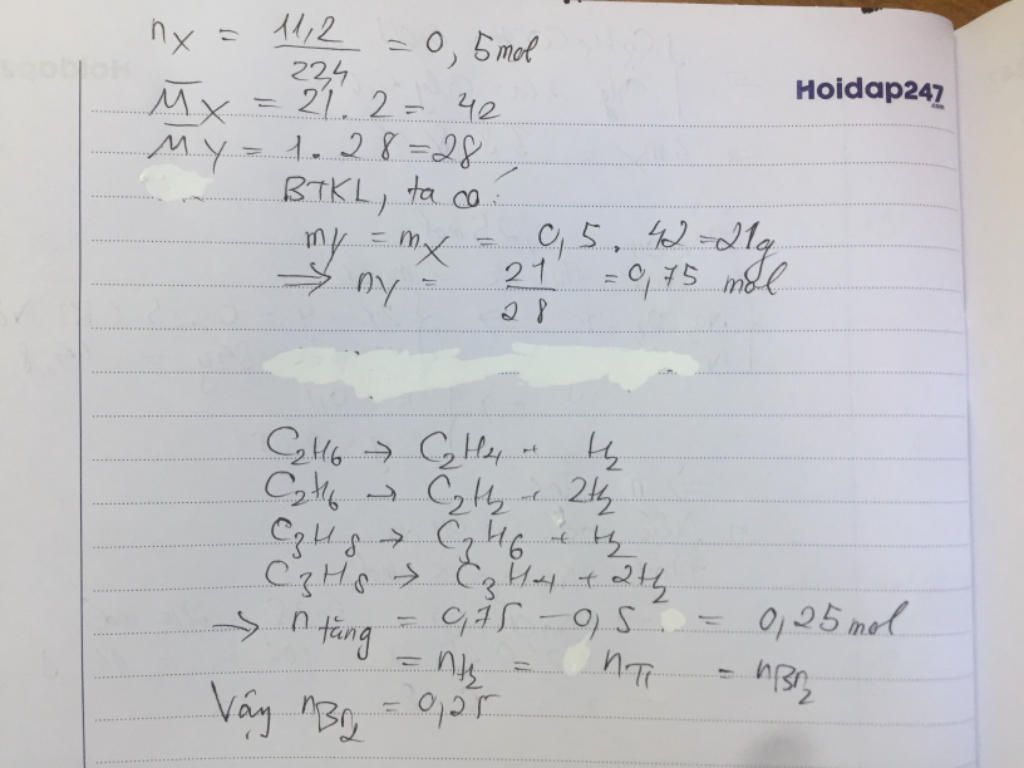 nX = 11,2 / 234 = 0,5 mol
Hoidap247
.com
M̅X = 21.2 = 42
M̅Y = 1.28 = 28
BTKL, ta có:
mY = mX = 0,5.42 = 21g
=> nY = 21 / 28 = 0,75 mol
C2H6 → C2H4 + H2
C2H6 → C2H2 + 2H2
C3H8 → C3H6 + H2
C3H8 → C3H4 + 2H2
→ n tăng = 0,75 - 0,5 = 0,25 mol
= nH2 = nπ = nBr2
Vậy nBr2 = 0,25